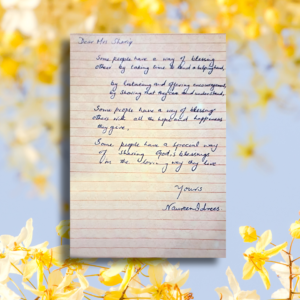 Dear Mrs. Sharif
Some people have a way of blessing
others by taking time to lend a helping hand
by listening and offering encouragement
by showing that they care and understand.
Some people have a way of blessing
others with all the hope and happiness
they give.
Some people have a special way
of sharing God's blessings
in the loving way they live
Yours
Nausheen Idrees